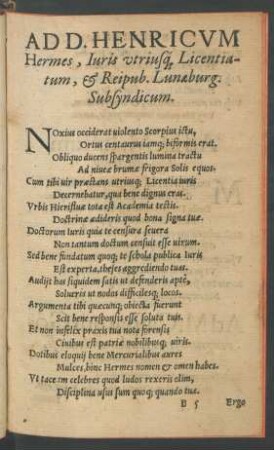 AD D. HENRICVM
Hermes, Iuris vtriusq́, Licentia-
tum, & Reipub. Lunæburg.
Subsyndicum.
NOxius occiderat uiolento Scorpius ictu,
Ortus centaurus iamq; bisormis erat.
Obliquo ducens spargentis lumina tractu
Ad niueæ brumæ frigora Solis equos.
Cum tibi uir præstans utriusq; Licentia iuris
Decernebatur, qua bene dignus eras.
Vrbis Hieristhæ tota est Academia tectis.
Doctrinæ adideris quod bona signa tuæ.
Doctorum iuris quia te censura seuera
Non tantum doctum censuit esse uirum.
Sed bene fundatum quoq; te schola publica Iuris
Est experta, theses aggrediendo tuas.
Audijt has siquidem satis ut defenderis aptè,
Solueris ut nodos difficilesq; locos.
Argumenta tibi quæcunq; obiecta fuerunt
Scit bene responsis esse soluta tuis.
Et non infelix præxis tua nota forensis
Ciuibus est patriæ nobilibusq; uiris.
Dotibus eloquij bene Mercurialibus aures
Mulces, hinc Hermes nomen & omen habes.
Vt taceam celebres quod ludos rexeris olim,
Disciplina usus sum quoq; quando tua.
B 5 Ergo